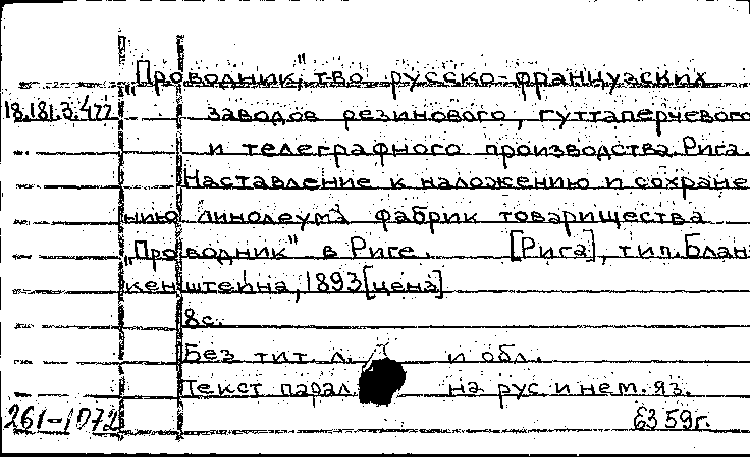 „Проводник", т-во русско-французских
18.181.3.477 заводов резинового, гуттаперчевого
и телеграфного производства. Рига.
Наставление к наложению и сохране
нию линолеума фабрик товарищества
„Проводник" в Риге. [Рига], тип. Блан
кенштейна, 1893 [цена]
8 с.
Без тит. л. и обл.
Текст парал. на рус. и нем. яз.
261-1072 59г.